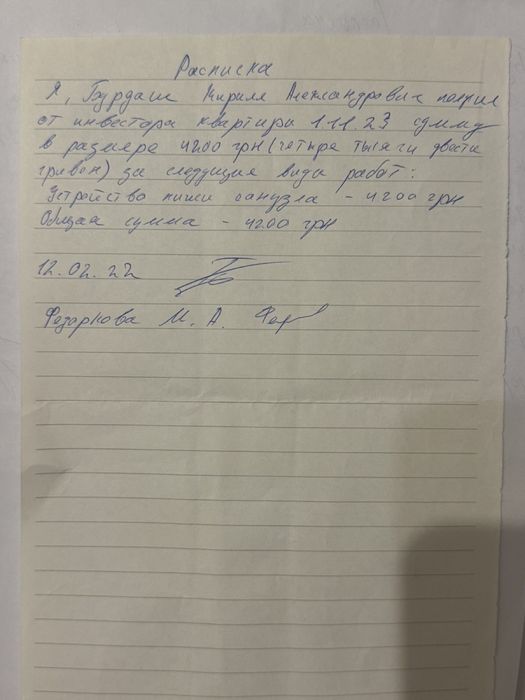 Расписка
Я, Бурдаш Кирилл Александрович получил
от инвестора квартиры 1.11.23 сумму
в размере 4200 грн (четыре тысячи двести
гривен) за следущие виды работ:
Устройство ниши санузла - 4200 грн
Общая сумма - 4200 грн
12.02.22
Федоркова М. А.